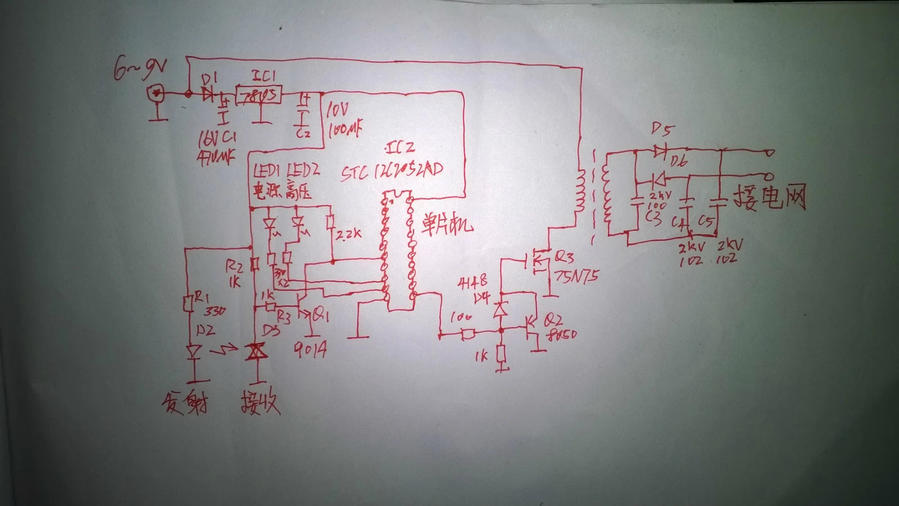 6~9V
D1
IC1
7805
16V C1
470MF
C2
10V
100MF
IC2
STC12C2052AD
LED1 LED2
电源 高压
2.2K
单片机
R2
1K
R1
330
D2
1K
R3
Q1
9014
D3
发射
接收
100
1K
4148
D4
Q2
8050
Q3
75N75
D5
D6
2KV
100
C3
C4
C5
2KV
102
2KV
102
接电网